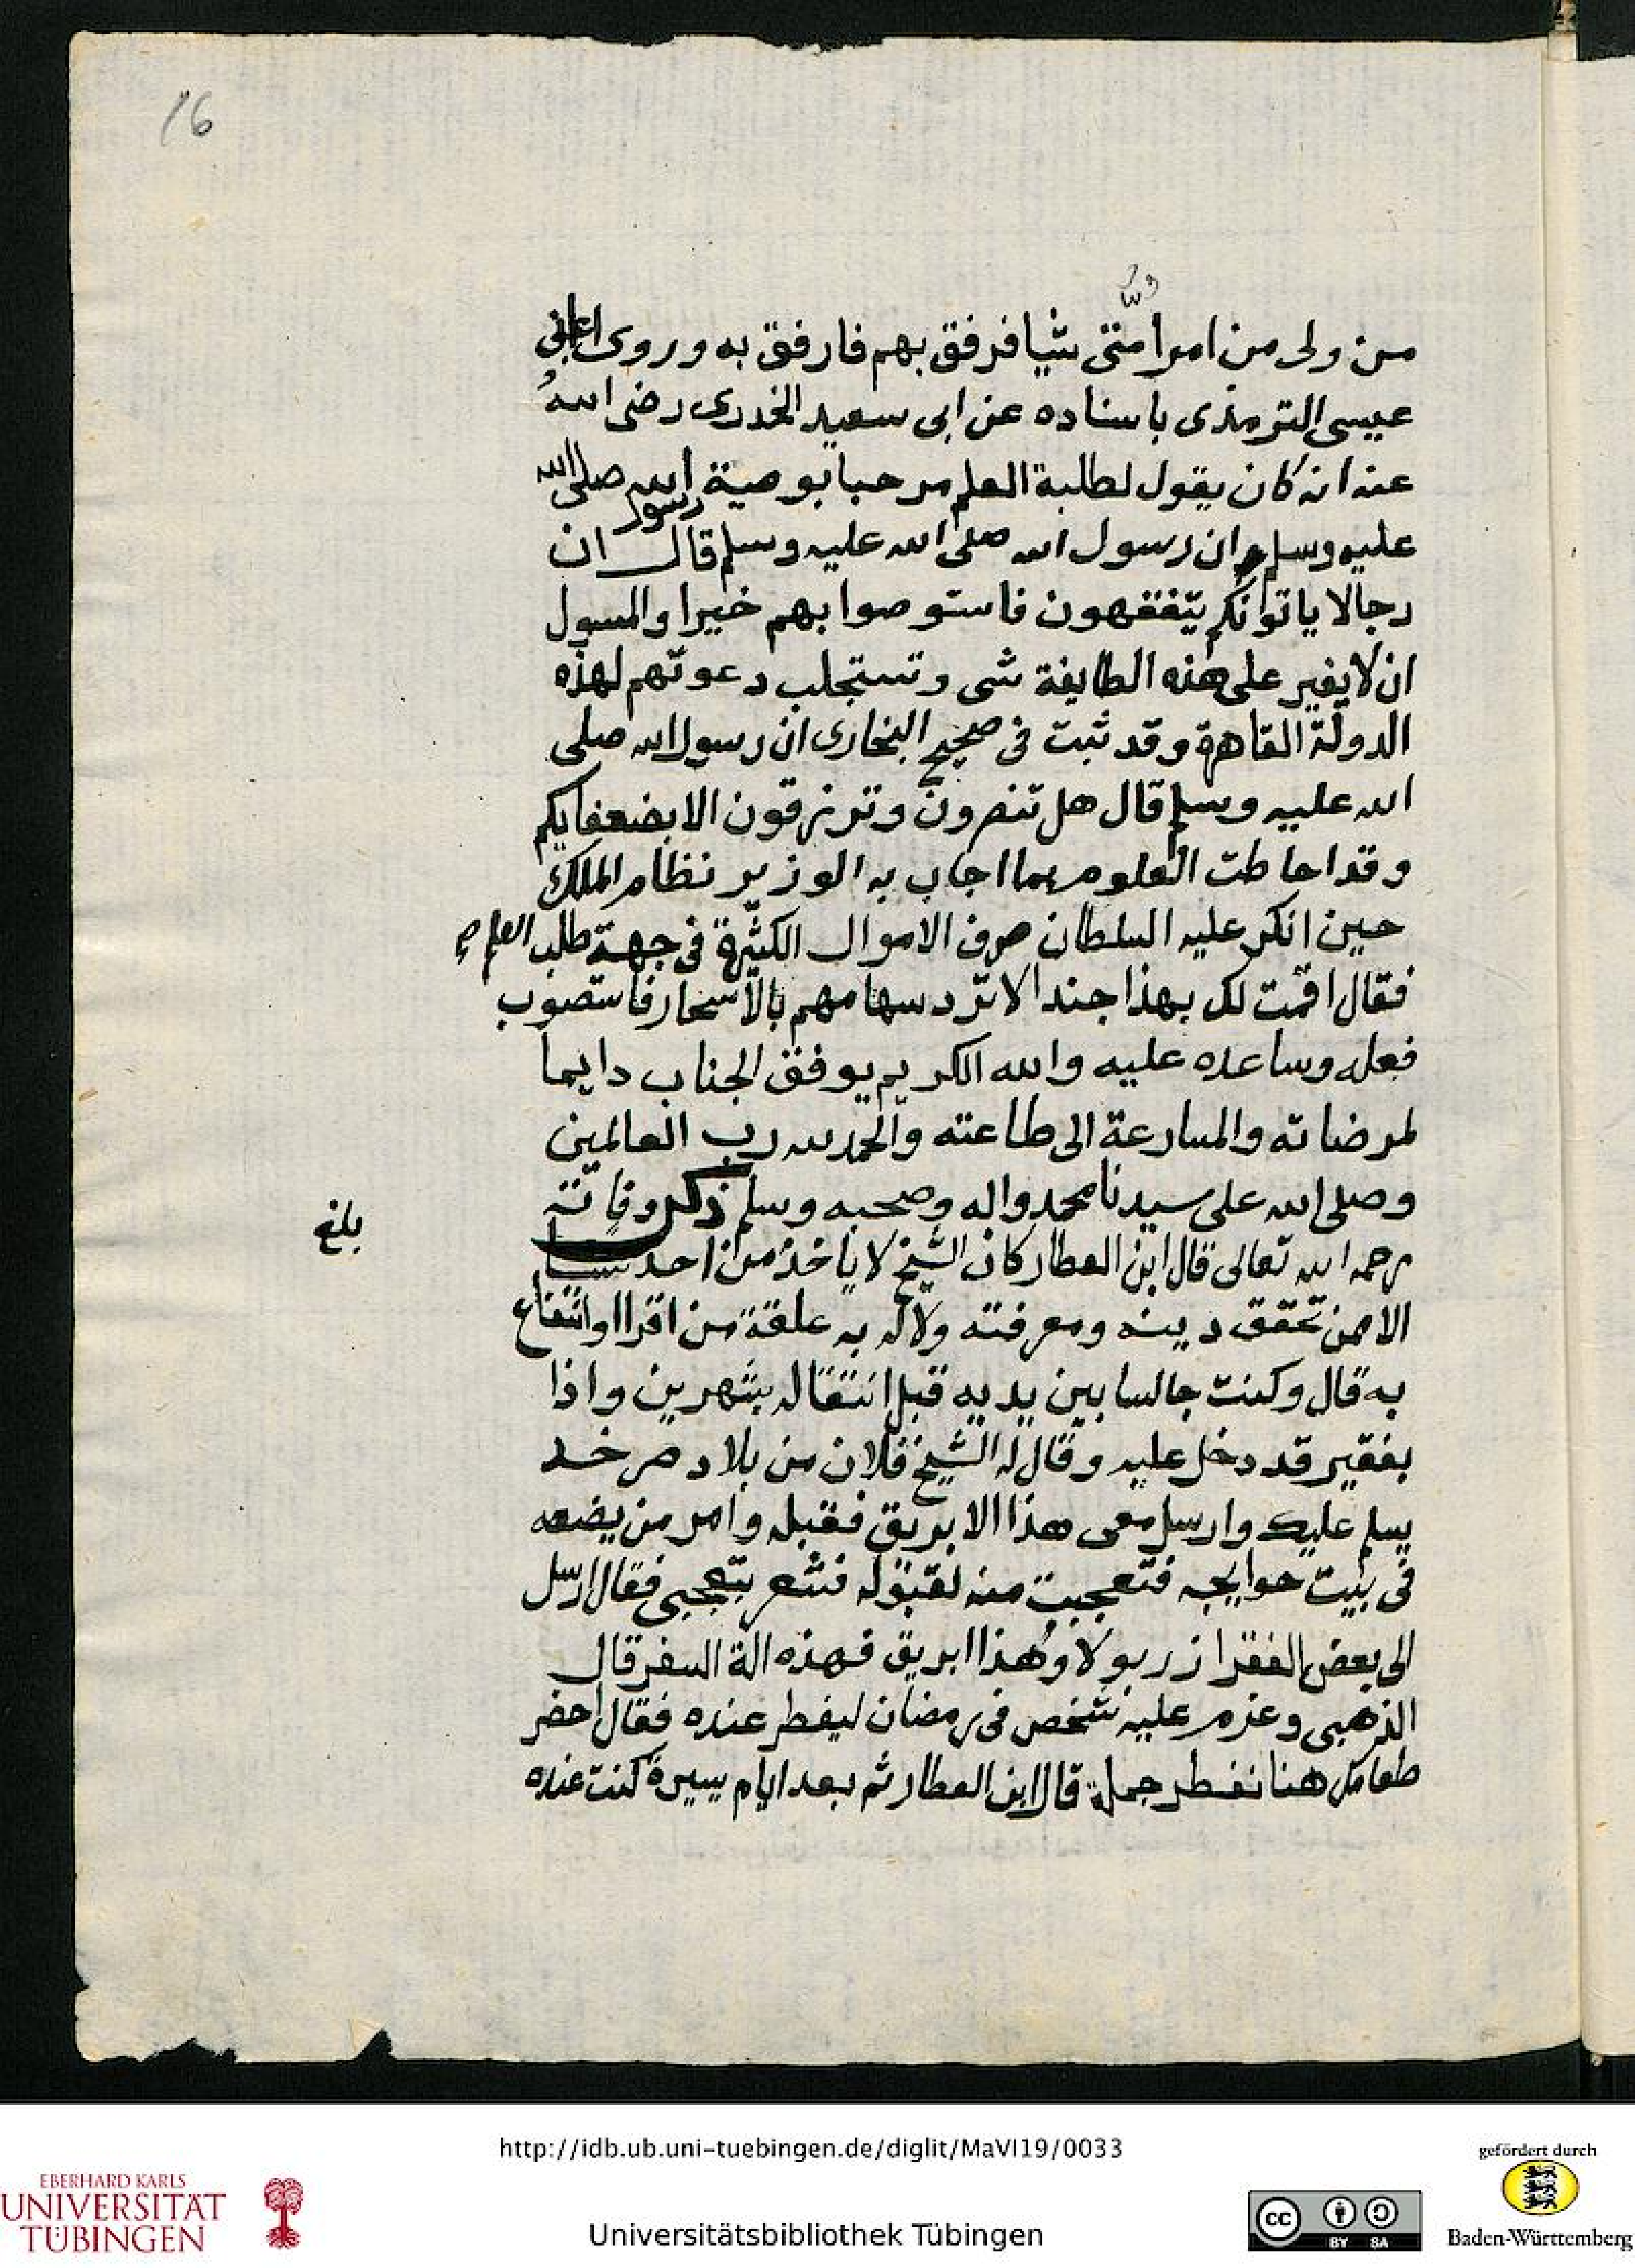 16
من ولى من امر امتى شيا فرفق بهم فارفق به وروى ابى
عيسى الترمذى باسناده عن ابى سعيد الخدرى رضى الله
عنه انه كان يقول لطلبة العلم مرحبا بوصية رسول الله صلى الله
عليه وسلم ان رسول الله صلى الله عليه وسلم قال ان
رجالا ياتوانكم يتفقهون فاستوصوا بهم خيرا والمسول
ان لا يغير على هذه الطايفة شى وتستجلب دعوتهم لهذه
الدولة القاهرة وقد ثبت فى صحيح البخارى ان رسول الله صلى
الله عليه وسلم قال هل تنصرون وترزقون الا بضعفايكم
وقد احاطت العلوم بما اجاب به الوزير نظام الملك
حين انكر عليه السلطان صرف الاموال الكثيرة فى جهة طلب العلم
فقال اقمت لك بهذا جندا لا ترد سهامهم بالاسحار فاستصوب
فعله وساعده عليه والله الكريم يوفق الجناب دايما
لمرضاته والمسارعة الى طاعته والحمد لله رب العالمين
وصلى الله على سيدنا محمد واله وصحبه وسلم ذكر وفاته
بلغ
رحمه الله تعالى قال ابن العطار كان الشيخ لا ياخذ من احد شيا
الا ممن تحقق دينه ومعرفته ولا له به علقة من اقرا او انتفاع
به قال وكنت جالسا بين يديه قبل انتقاله بشهرين واذا
بفقير قد دخل عليه وقال له الشيخ فلان من بلاد صرخد
يسلم عليك وارسل معى هذا الابريق فقبله وامر من يضعه
فى بيت حوايجه فتعجبت منه لقبوله فشعر بتعجبى فقال ارسل
الى بعض الفقرا زربولا وهذا ابريق فهذه الة السفر قال
الذهبى وعزم عليه شخص فى رمضان ليفطر عنده فقال احضر
طعامك هنا نفطر جملة قال ابن العطار ثم بعد ايام يسيرة كنت عنده
http://idb.ub.uni-tuebingen.de/diglit/MaVI19/0033
Universitätsbibliothek Tübingen
EBERHARD KARLS
UNIVERSITÄT
TÜBINGEN
cc BY SA
gefördert durch
Baden-Württemberg